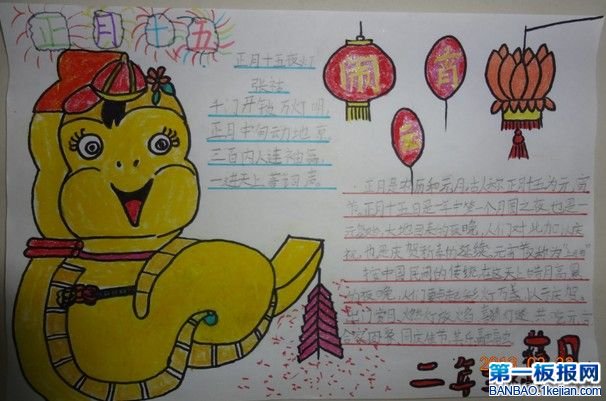 正月十五
正月十五夜灯
张祜
千门开锁万灯明,
正月中旬动地京
三百内人连袖舞,
一进天上著词声。
闹
元
宵
正月是农历和元月,古人称
节。正月十五日是一年中第一个月圆之夜,也是一
大地回春的夜晚,人们对此加以庆
祝,也是庆贺新春的延续。元宵节又称为
按中国民间的传统,在这天上皓月高悬
的夜晚,人们要点起彩灯万盏,以示庆贺。
出门赏月、燃灯放焰、喜猜灯谜、共吃元宵
合家团聚、同庆佳节,其乐融融
二年
第一板报网
BANBAO.1kejian.com